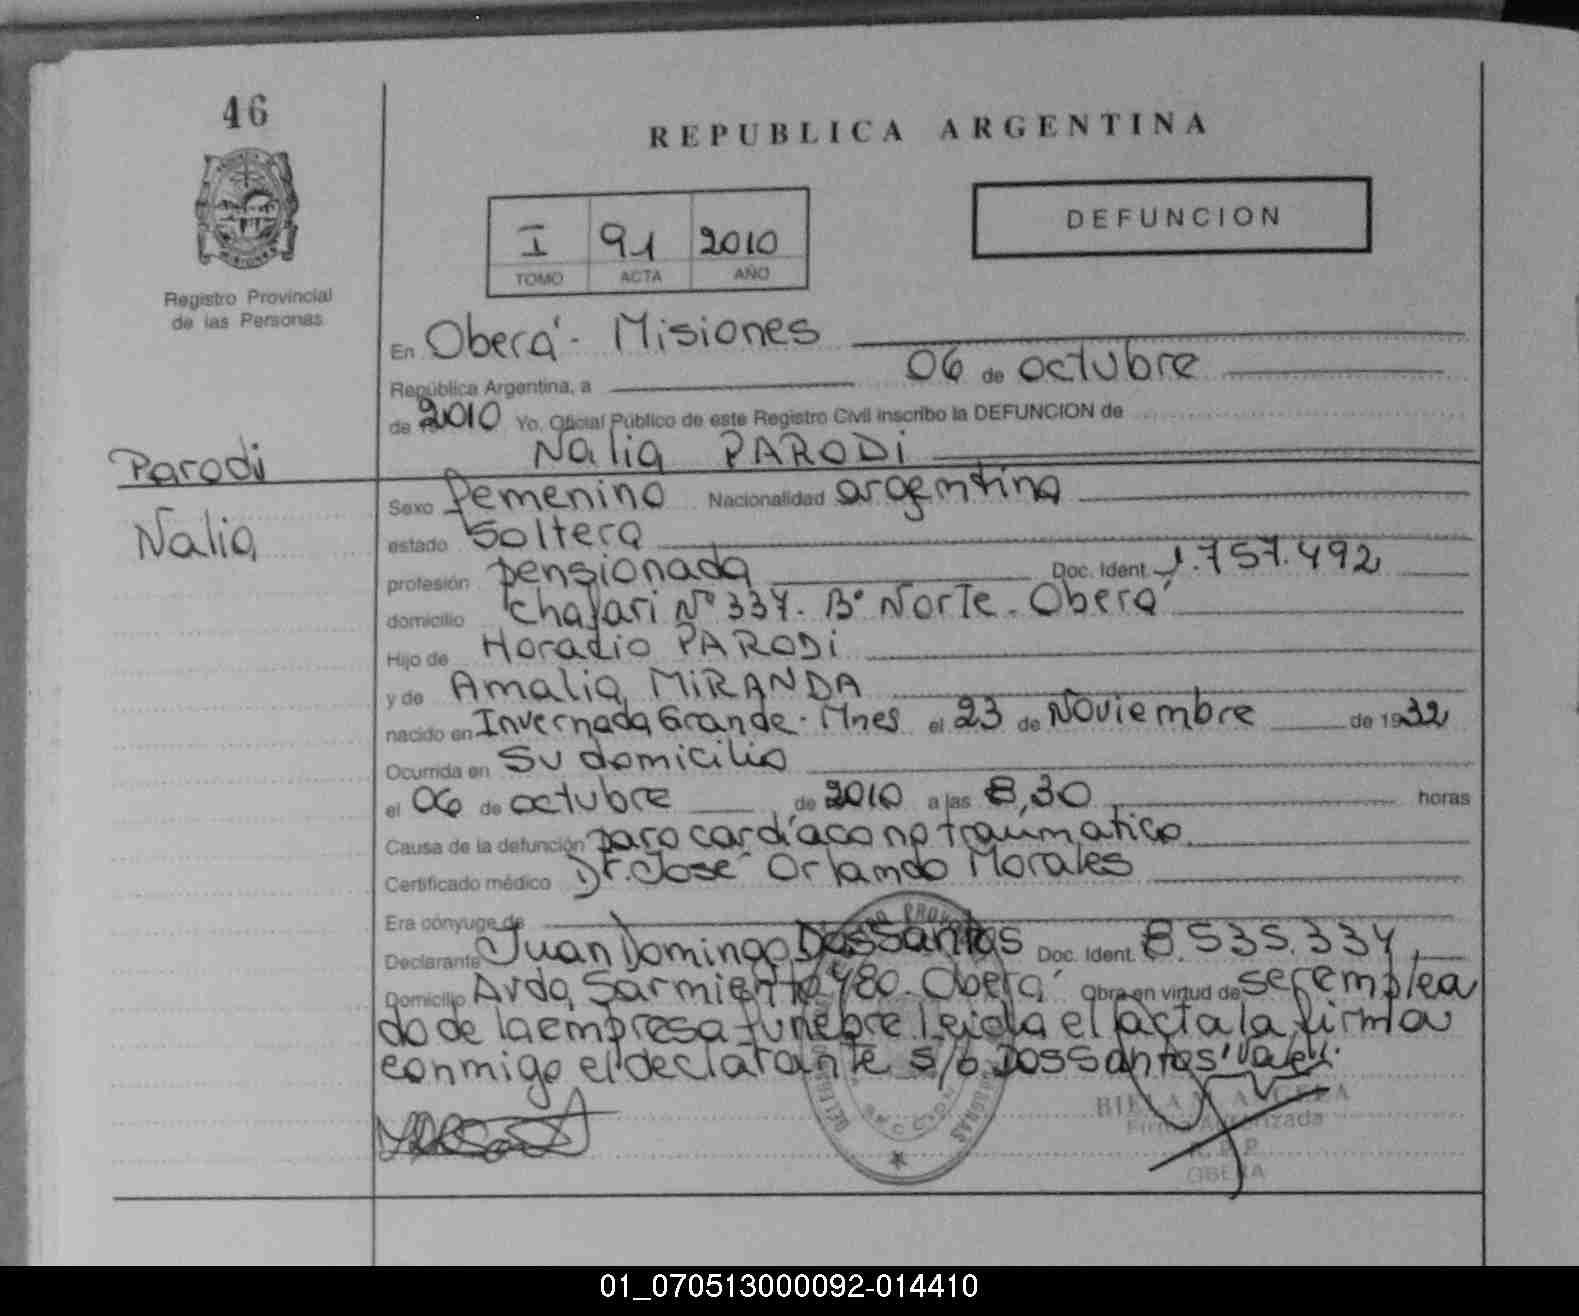 46
REPUBLICA ARGENTINA
DEFUNCION
I 91 2010
TOMO ACTA AÑO
Registro Provincial
de las Personas
En Oberá - Misiones
República Argentina, a 06 de octubre
de 2010 Yo, Oficial Público de este Registro Civil inscribo la DEFUNCION de
Nalia PARODI
Parodi
Nalia
Sexo femenino Nacionalidad argentina
estado Soltera
profesión pensionada Doc. Ident. 1.757.492
domicilio Chajari Nº 337. Bº Norte - Oberá
Hijo de Horacio PARODI
y de Amalia MIRANDA
nacido en Invernada Grande - Mnes el 23 de Noviembre de 1932
Ocurrida en Su domicilio
el 06 de octubre de 2010 a las 8,30 horas
Causa de la defunción paro cardíaco no traumatico
Certificado médico Dr. José Orlando Morales
Era cónyuge de
Declarante Juan Domingo Dos Santos Doc. Ident. 8.535.334
Domicilio Avda Sarmiento 480 - Oberá Obra en virtud de ser emplea
do de la empresa funebre leida el acta la firma
conmigo el declarante s/b Dos Santos "Vale".
Firma Autorizada
OBERA
01_070513000092-014410